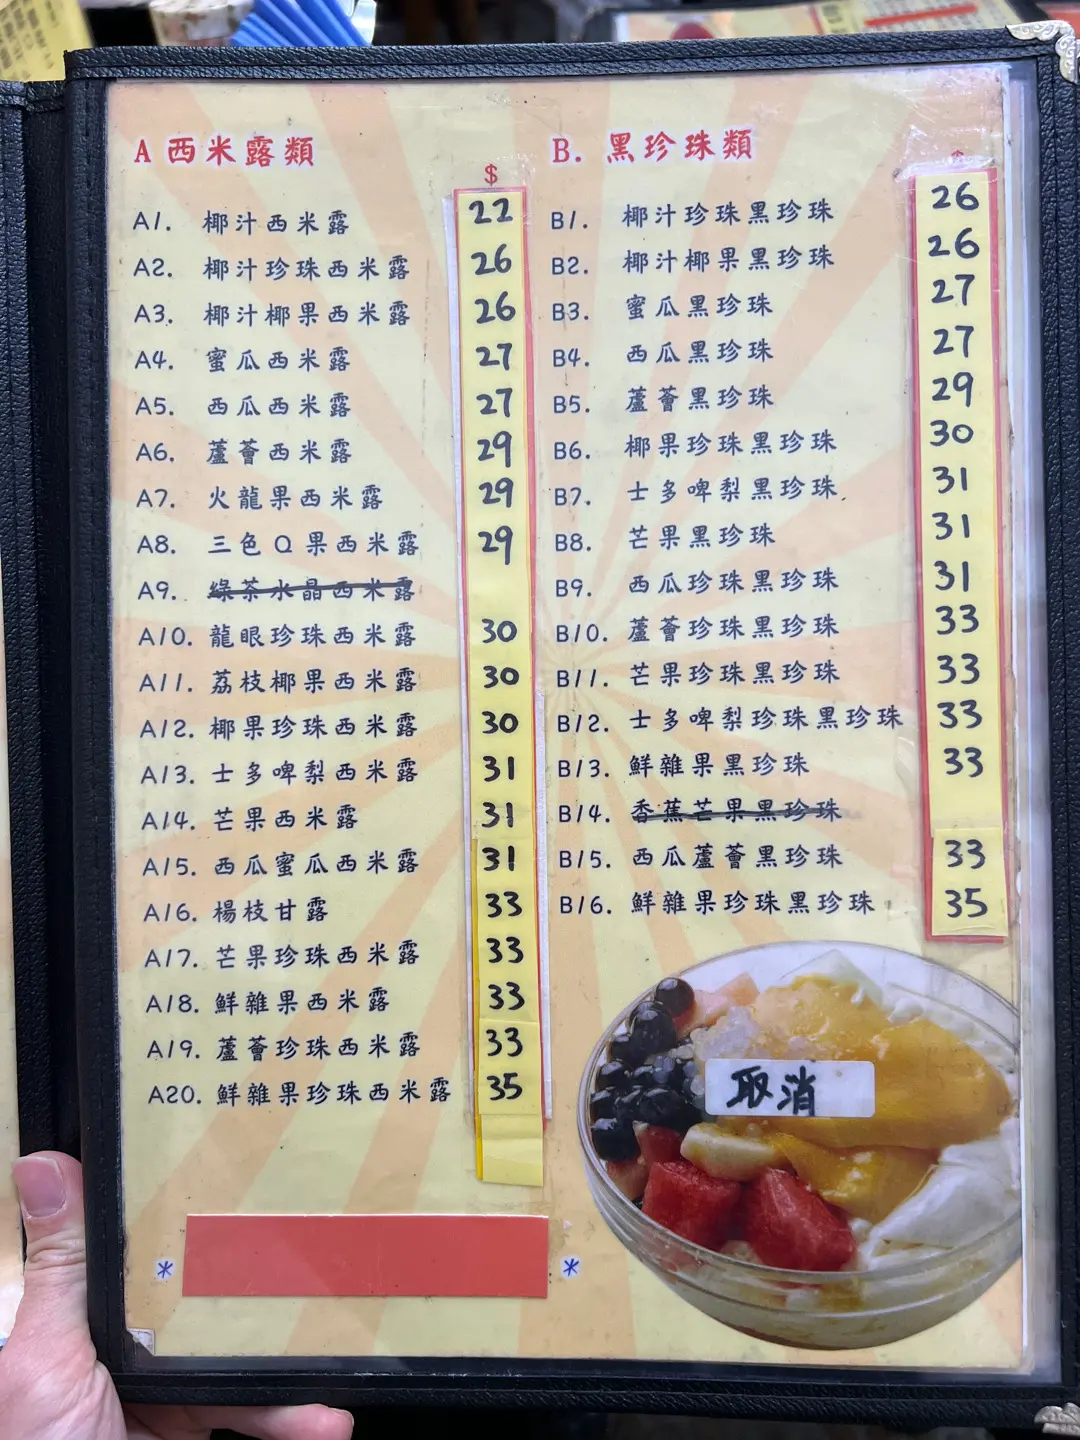 A 西米露類
$
A1. 椰汁西米露 22
A2. 椰汁珍珠西米露 26
A3. 椰汁椰果西米露 26
A4. 蜜瓜西米露 27
A5. 西瓜西米露 27
A6. 蘆薈西米露 29
A7. 火龍果西米露 29
A8. 三色Q果西米露 29
A9. 綠茶水晶西米露
A10. 龍眼珍珠西米露 30
A11. 荔枝椰果西米露 30
A12. 椰果珍珠西米露 30
A13. 士多啤梨西米露 31
A14. 芒果西米露 31
A15. 西瓜蜜瓜西米露 31
A16. 楊枝甘露 33
A17. 芒果珍珠西米露 33
A18. 鮮雜果西米露 33
A19. 蘆薈珍珠西米露 33
A20. 鮮雜果珍珠西米露 35
* *
B. 黑珍珠類
B1. 椰汁珍珠黑珍珠 26
B2. 椰汁椰果黑珍珠 26
B3. 蜜瓜黑珍珠 27
B4. 西瓜黑珍珠 27
B5. 蘆薈黑珍珠 29
B6. 椰果珍珠黑珍珠 30
B7. 士多啤梨黑珍珠 31
B8. 芒果黑珍珠 31
B9. 西瓜珍珠黑珍珠 31
B10. 蘆薈珍珠黑珍珠 33
B11. 芒果珍珠黑珍珠 33
B12. 士多啤梨珍珠黑珍珠 33
B13. 鮮雜果黑珍珠 33
B14. 香蕉芒果黑珍珠
B15. 西瓜蘆薈黑珍珠 33
B16. 鮮雜果珍珠黑珍珠 35
取消